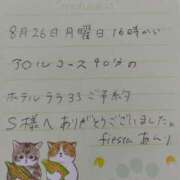 8月26日月曜日16時から
アロルコース90分の
ホテルララ33ご予約
S様へありがとうございました。
fiestaあんり